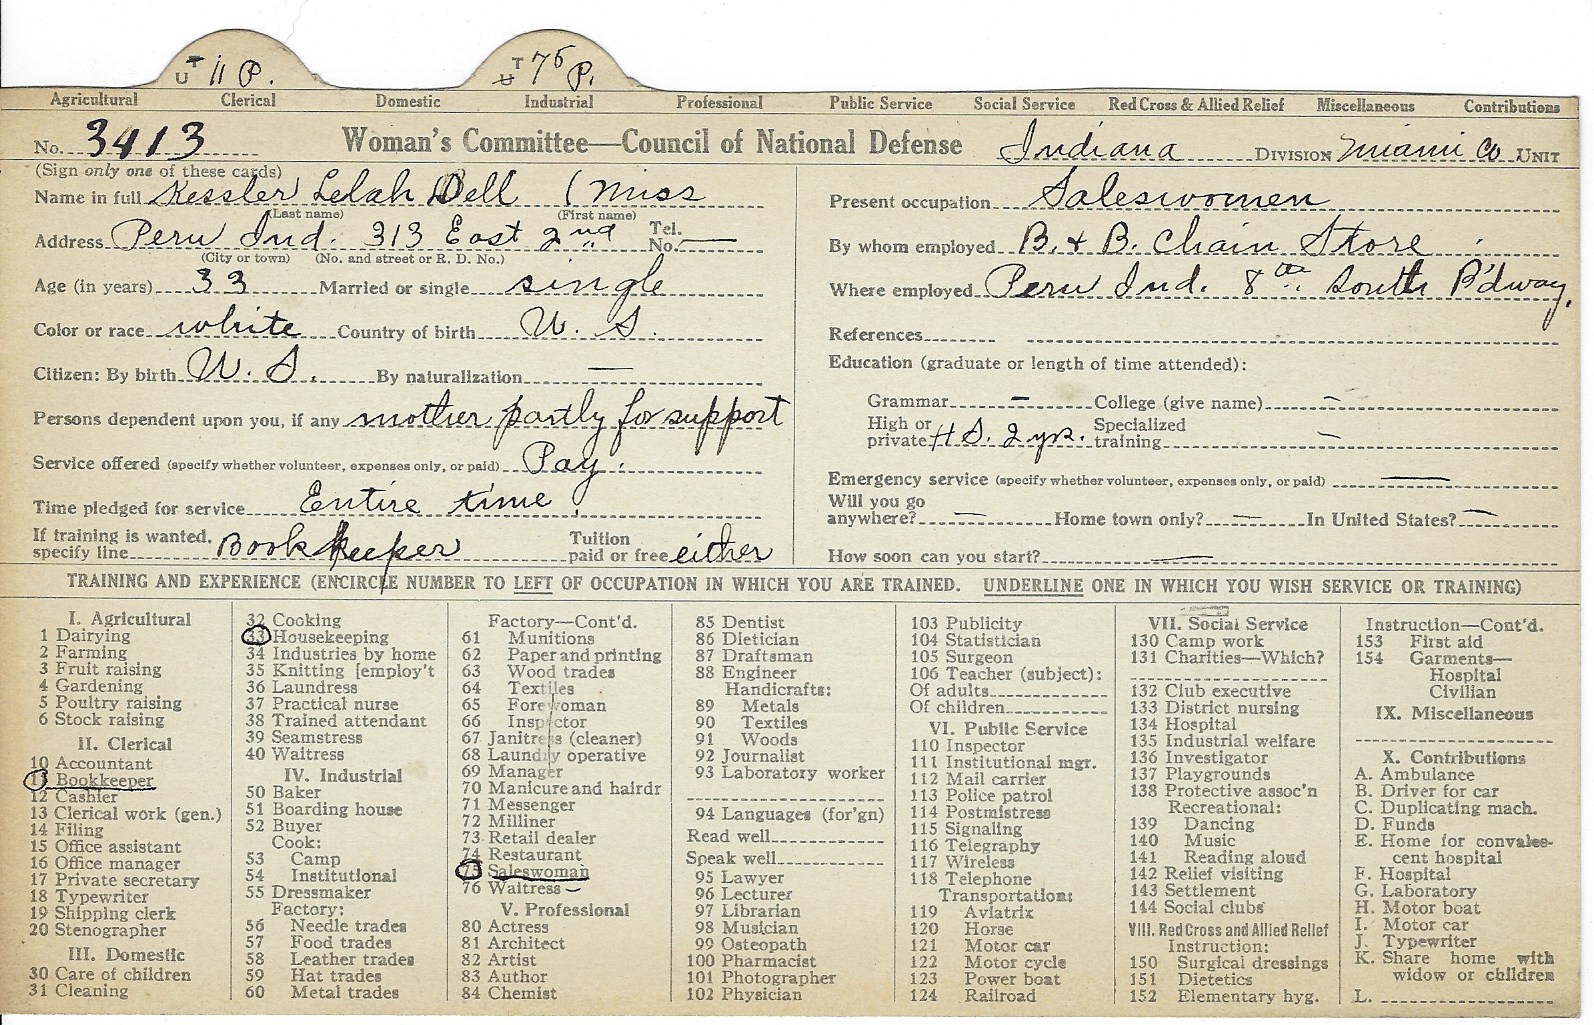 T U 11 P. T U 75 P.
Agricultural Clerical Domestic Industrial Professional Public Service Social Service Red Cross & Allied Relief Miscellaneous Contributions
No. 3413 Woman's Committee—Council of National Defense Indiana DIVISION Miami Co UNIT
(Sign only one of these cards)
Name in full Kessler Lelah Dell (Miss
(Last name) (First name)
Address Peru Ind. 313 East 2nd Tel. No. —
(City or town) (No. and street or R. D. No.)
Age (in years) 33 Married or single single
Color or race white Country of birth U. S.
Citizen: By birth U. S. By naturalization —
Persons dependent upon you, if any mother partly for support
Service offered (specify whether volunteer, expenses only, or paid) Pay.
Time pledged for service Entire time
If training is wanted, specify line Book Keeper Tuition paid or free either
Present occupation Saleswomen
By whom employed B. & B. Chain Store
Where employed Peru Ind. 8 South B'dway.
References
Education (graduate or length of time attended):
Grammar — College (give name) —
High or private H S. 2 yr. Specialized training —
Emergency service (specify whether volunteer, expenses only, or paid) —
Will you go anywhere? — Home town only? — In United States? —
How soon can you start? —
TRAINING AND EXPERIENCE (ENCIRCLE NUMBER TO LEFT OF OCCUPATION IN WHICH YOU ARE TRAINED. UNDERLINE ONE IN WHICH YOU WISH SERVICE OR TRAINING)
I. Agricultural
1 Dairying
2 Farming
3 Fruit raising
4 Gardening
5 Poultry raising
6 Stock raising
II. Clerical
10 Accountant
11 Bookkeeper
12 Cashier
13 Clerical work (gen.)
14 Filing
15 Office assistant
16 Office manager
17 Private secretary
18 Typewriter
19 Shipping clerk
20 Stenographer
III. Domestic
30 Care of children
31 Cleaning
32 Cooking
33 Housekeeping
34 Industries by home
35 Knitting [employ't
36 Laundress
37 Practical nurse
38 Trained attendant
39 Seamstress
40 Waitress
IV. Industrial
50 Baker
51 Boarding house
52 Buyer
Cook:
53 Camp
54 Institutional
55 Dressmaker
Factory:
56 Needle trades
57 Food trades
58 Leather trades
59 Hat trades
60 Metal trades
Factory—Cont'd.
61 Munitions
62 Paper and printing
63 Wood trades
64 Textiles
65 Forewoman
66 Inspector
67 Janitress (cleaner)
68 Laundry operative
69 Manager
70 Manicure and hairdr
71 Messenger
72 Milliner
73 Retail dealer
74 Restaurant
75 Saleswoman
76 Waitress
V. Professional
80 Actress
81 Architect
82 Artist
83 Author
84 Chemist
85 Dentist
86 Dietician
87 Draftsman
88 Engineer
Handicrafts:
89 Metals
90 Textiles
91 Woods
92 Journalist
93 Laboratory worker
94 Languages (for'gn)
Read well
Speak well
95 Lawyer
96 Lecturer
97 Librarian
98 Musician
99 Osteopath
100 Pharmacist
101 Photographer
102 Physician
103 Publicity
104 Statistician
105 Surgeon
106 Teacher (subject):
Of adults
Of children
VI. Public Service
110 Inspector
111 Institutional mgr.
112 Mail carrier
113 Police patrol
114 Postmistress
115 Signaling
116 Telegraphy
117 Wireless
118 Telephone
Transportation:
119 Aviatrix
120 Horse
121 Motor car
122 Motor cycle
123 Power boat
124 Railroad
VII. Social Service
130 Camp work
131 Charities—Which?
132 Club executive
133 District nursing
134 Hospital
135 Industrial welfare
136 Investigator
137 Playgrounds
138 Protective assoc'n
Recreational:
139 Dancing
140 Music
141 Reading aloud
142 Relief visiting
143 Settlement
144 Social clubs
VIII. Red Cross and Allied Relief
Instruction:
150 Surgical dressings
151 Dietetics
152 Elementary hyg.
Instruction—Cont'd.
153 First aid
154 Garments—
Hospital
Civilian
IX. Miscellaneous
X. Contributions
A. Ambulance
B. Driver for car
C. Duplicating mach.
D. Funds
E. Home for convales-
cent hospital
F. Hospital
G. Laboratory
H. Motor boat
I. Motor car
J. Typewriter
K. Share home with
widow or children
L.